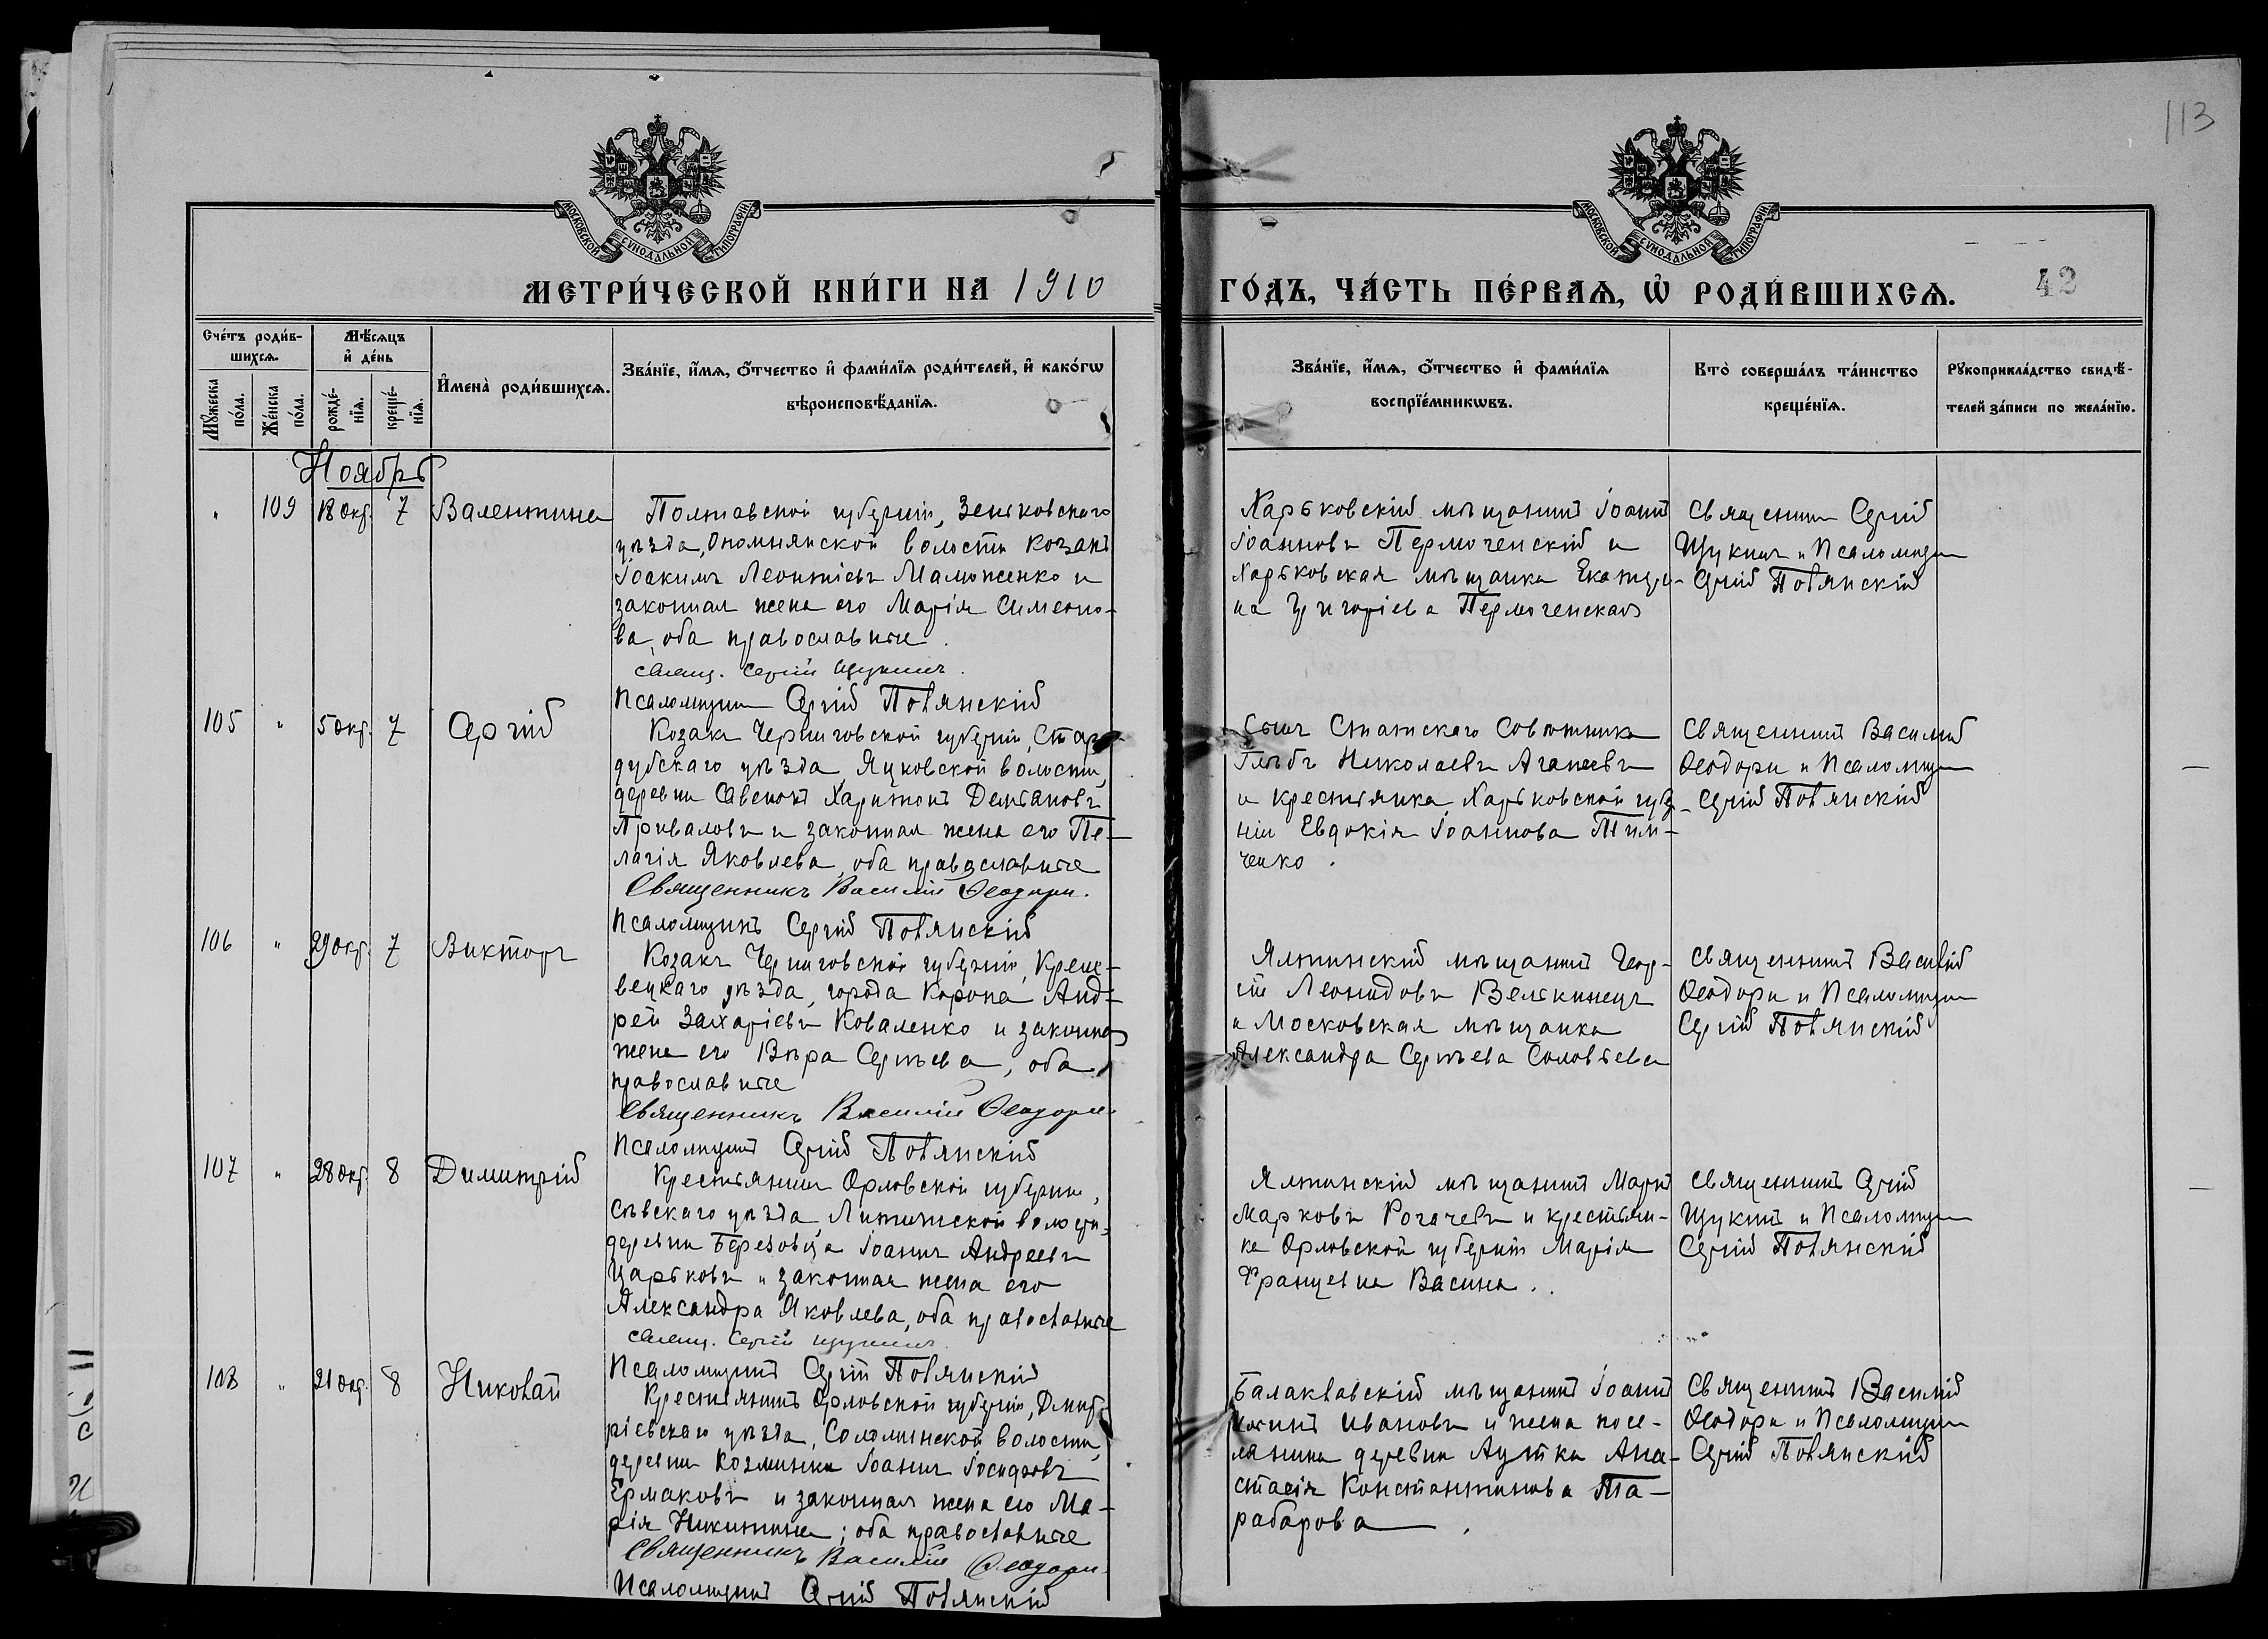 113
МОСКОВСКОЙ СѴНОДАЛЬНОЙ ТИПОГРАФІИ
МОСКОВСКОЙ СѴНОДАЛЬНОЙ ТИПОГРАФІИ
МЕТРИ́ЧЕСКОЙ КНИ́ГИ НА 1910
ГО́ДЪ, ЧА́СТЬ ПЕ́РВАѦ, Ѡ҆ РОДИ́ВШИХСѦ.
42
Сче́тъ роди́в-
шихсѧ.
Мꙋ́жеска
по́ла.
Же́нска
по́ла.
Мѣ́сѧцъ
и҆ де́нь
рожде́-
нїѧ.
креще́-
нїѧ.
И҆мена̀ роди́вшихсѧ.
Зва́нїе, и҆́мѧ, ѻ҆́тчество и҆ фами́лїѧ роди́телей, и҆ како́гѡ
вѣроисповѣ́данїѧ.
Зва́нїе, и҆́мѧ, ѻ҆́тчество и҆ фами́лїѧ
воспрїе́мникѡвъ.
Кто̀ соверша́лъ та́инство
креще́нїѧ.
Рꙋкоприкла́дство свидѣ́-
телей за́писи по жела́нїю.
Ноябрь
" 109 18 окт. 7 Валентина
Полтавской губерніи, Зеньковскаго
уѣзда, волости козакъ
Іоакимъ Леонтіевъ и
законная жена его Марія Симеоно-
ва, оба православные.
Свящ. Сергій Щукинъ.
Псаломщикъ Сергій
Харьковскій мѣщанинъ Іоаннъ
Іоанновъ Пермоченскій и
Харьковская мѣщанка Екатери-
на Григоріева Пермоченская
Священникъ Сергій
Щукинъ и Псаломщикъ
Сергій
105 " 5 окт. 7 Сергій
Козакъ Черниговской губерніи, Старо-
дубскаго уѣзда, Яцковской волости,
деревни Харитонъ Демьяновъ
Приваловъ и законная жена его Пе-
лагія Яковлева, оба православные
Священникъ Василій Ѳеодори.
Псаломщикъ Сергій
Сынъ Статскаго Совѣтника
Глѣбъ Николаевъ и
и крестьянка Харьковской губер-
ніи Евдокія Іоаннова Тим-
ченко.
Священникъ Василій
Ѳеодори и Псаломщикъ
Сергій
106 " 29 окт. 7 Викторъ
Козакъ Черниговской губерніи, Кроле-
вецкаго уѣзда, города Коропа Анд-
рей Захаріевъ Коваленко и законная
жена его Вѣра Сергѣева, оба
православные
Священникъ Василій Ѳеодори.
Псаломщикъ Сергій
Ялтинскій мѣщанинъ Геор-
гій Леонидовъ
и Московская мѣщанка
Александра Сергѣева Соловьева
Священникъ Василій
Ѳеодори и Псаломщикъ
Сергій
107 " 28 окт. 8 Димитрій
Крестьянинъ Орловской губерніи,
Сѣвскаго уѣзда, волости,
деревни Іоаннъ Андреевъ
Царьковъ и законная жена его
Александра Яковлева, оба православные
Свящ. Сергій Щукинъ
Псаломщикъ Сергій
Ялтинскій мѣщанинъ Маркъ
Марковъ Рогачевъ и крестьян-
ка Орловской губерніи Марія
Францевна Васина.
Священникъ Сергій
Щукинъ и Псаломщикъ
Сергій
108 " 21 окт. 8 Николай
Крестьянинъ Орловской губерніи, Дмит-
ріевскаго уѣзда, волости,
деревни Козминки Іоаннъ Іосифовъ
Ермаковъ и законная жена его Ма-
рія Никитина; оба православные
Священникъ Василій Ѳеодори.
Псаломщикъ Сергій
Балаклавскій мѣщанинъ Іоаннъ
Ивановъ и жена посе-
лянина деревни Аутка Ана-
стасія Константинова Та-
рабарова.
Священникъ Василій
Ѳеодори и Псаломщикъ
Сергій